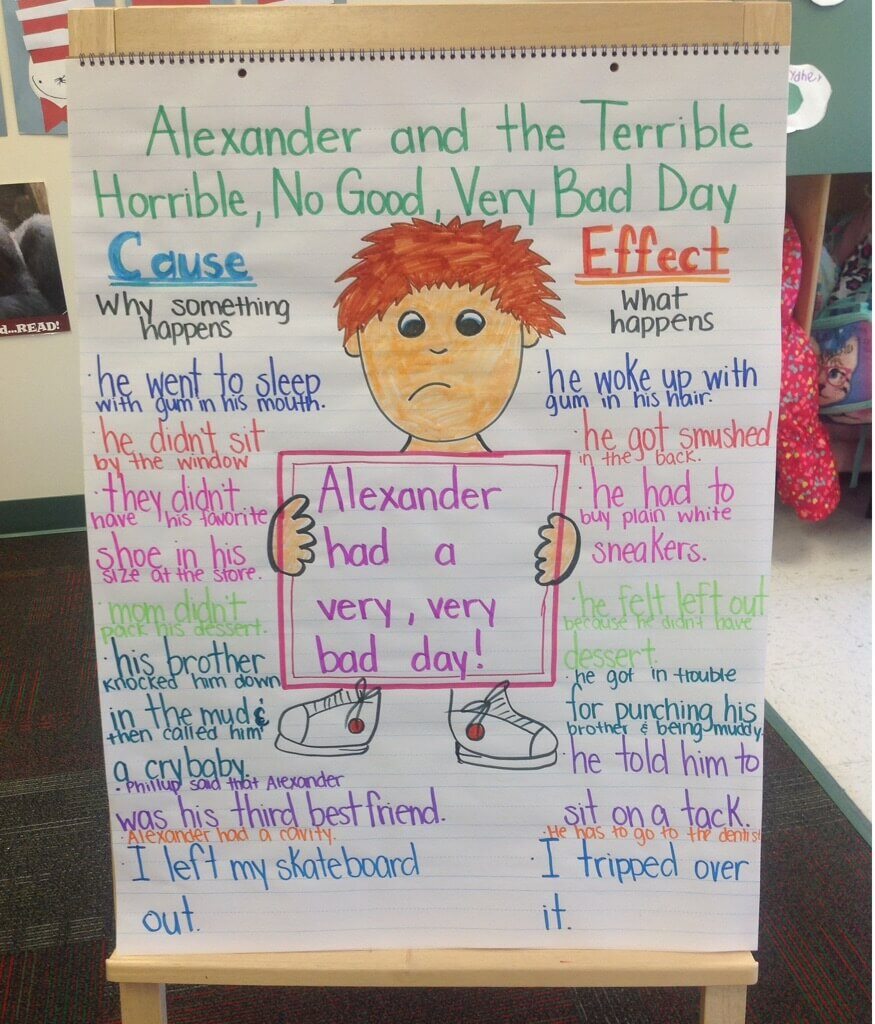 Alexander and the Terrible
Horrible, No Good, Very Bad Day
Cause
Why something
happens
he went to sleep
with gum in his mouth.
he didn't sit
by the window
they didn't
have his favorite
shoe in his
size at the store.
mom didn't
pack his dessert.
his brother
knocked him down
in the mud &
then called him
a crybaby.
Phillup said that Alexander
was his third best friend.
Alexander had a cavity.
I left my skateboard
out.
Alexander
had a
very, very
bad day!
Effect
What
happens
he woke up with
gum in his hair.
he got smushed
in the back.
he had to
buy plain white
sneakers.
he felt left out
because he didn't have
dessert.
he got in trouble
for punching his
brother & being muddy.
he told him to
sit on a tack.
He has to go to the dentist
I tripped over
it.
d...READ!